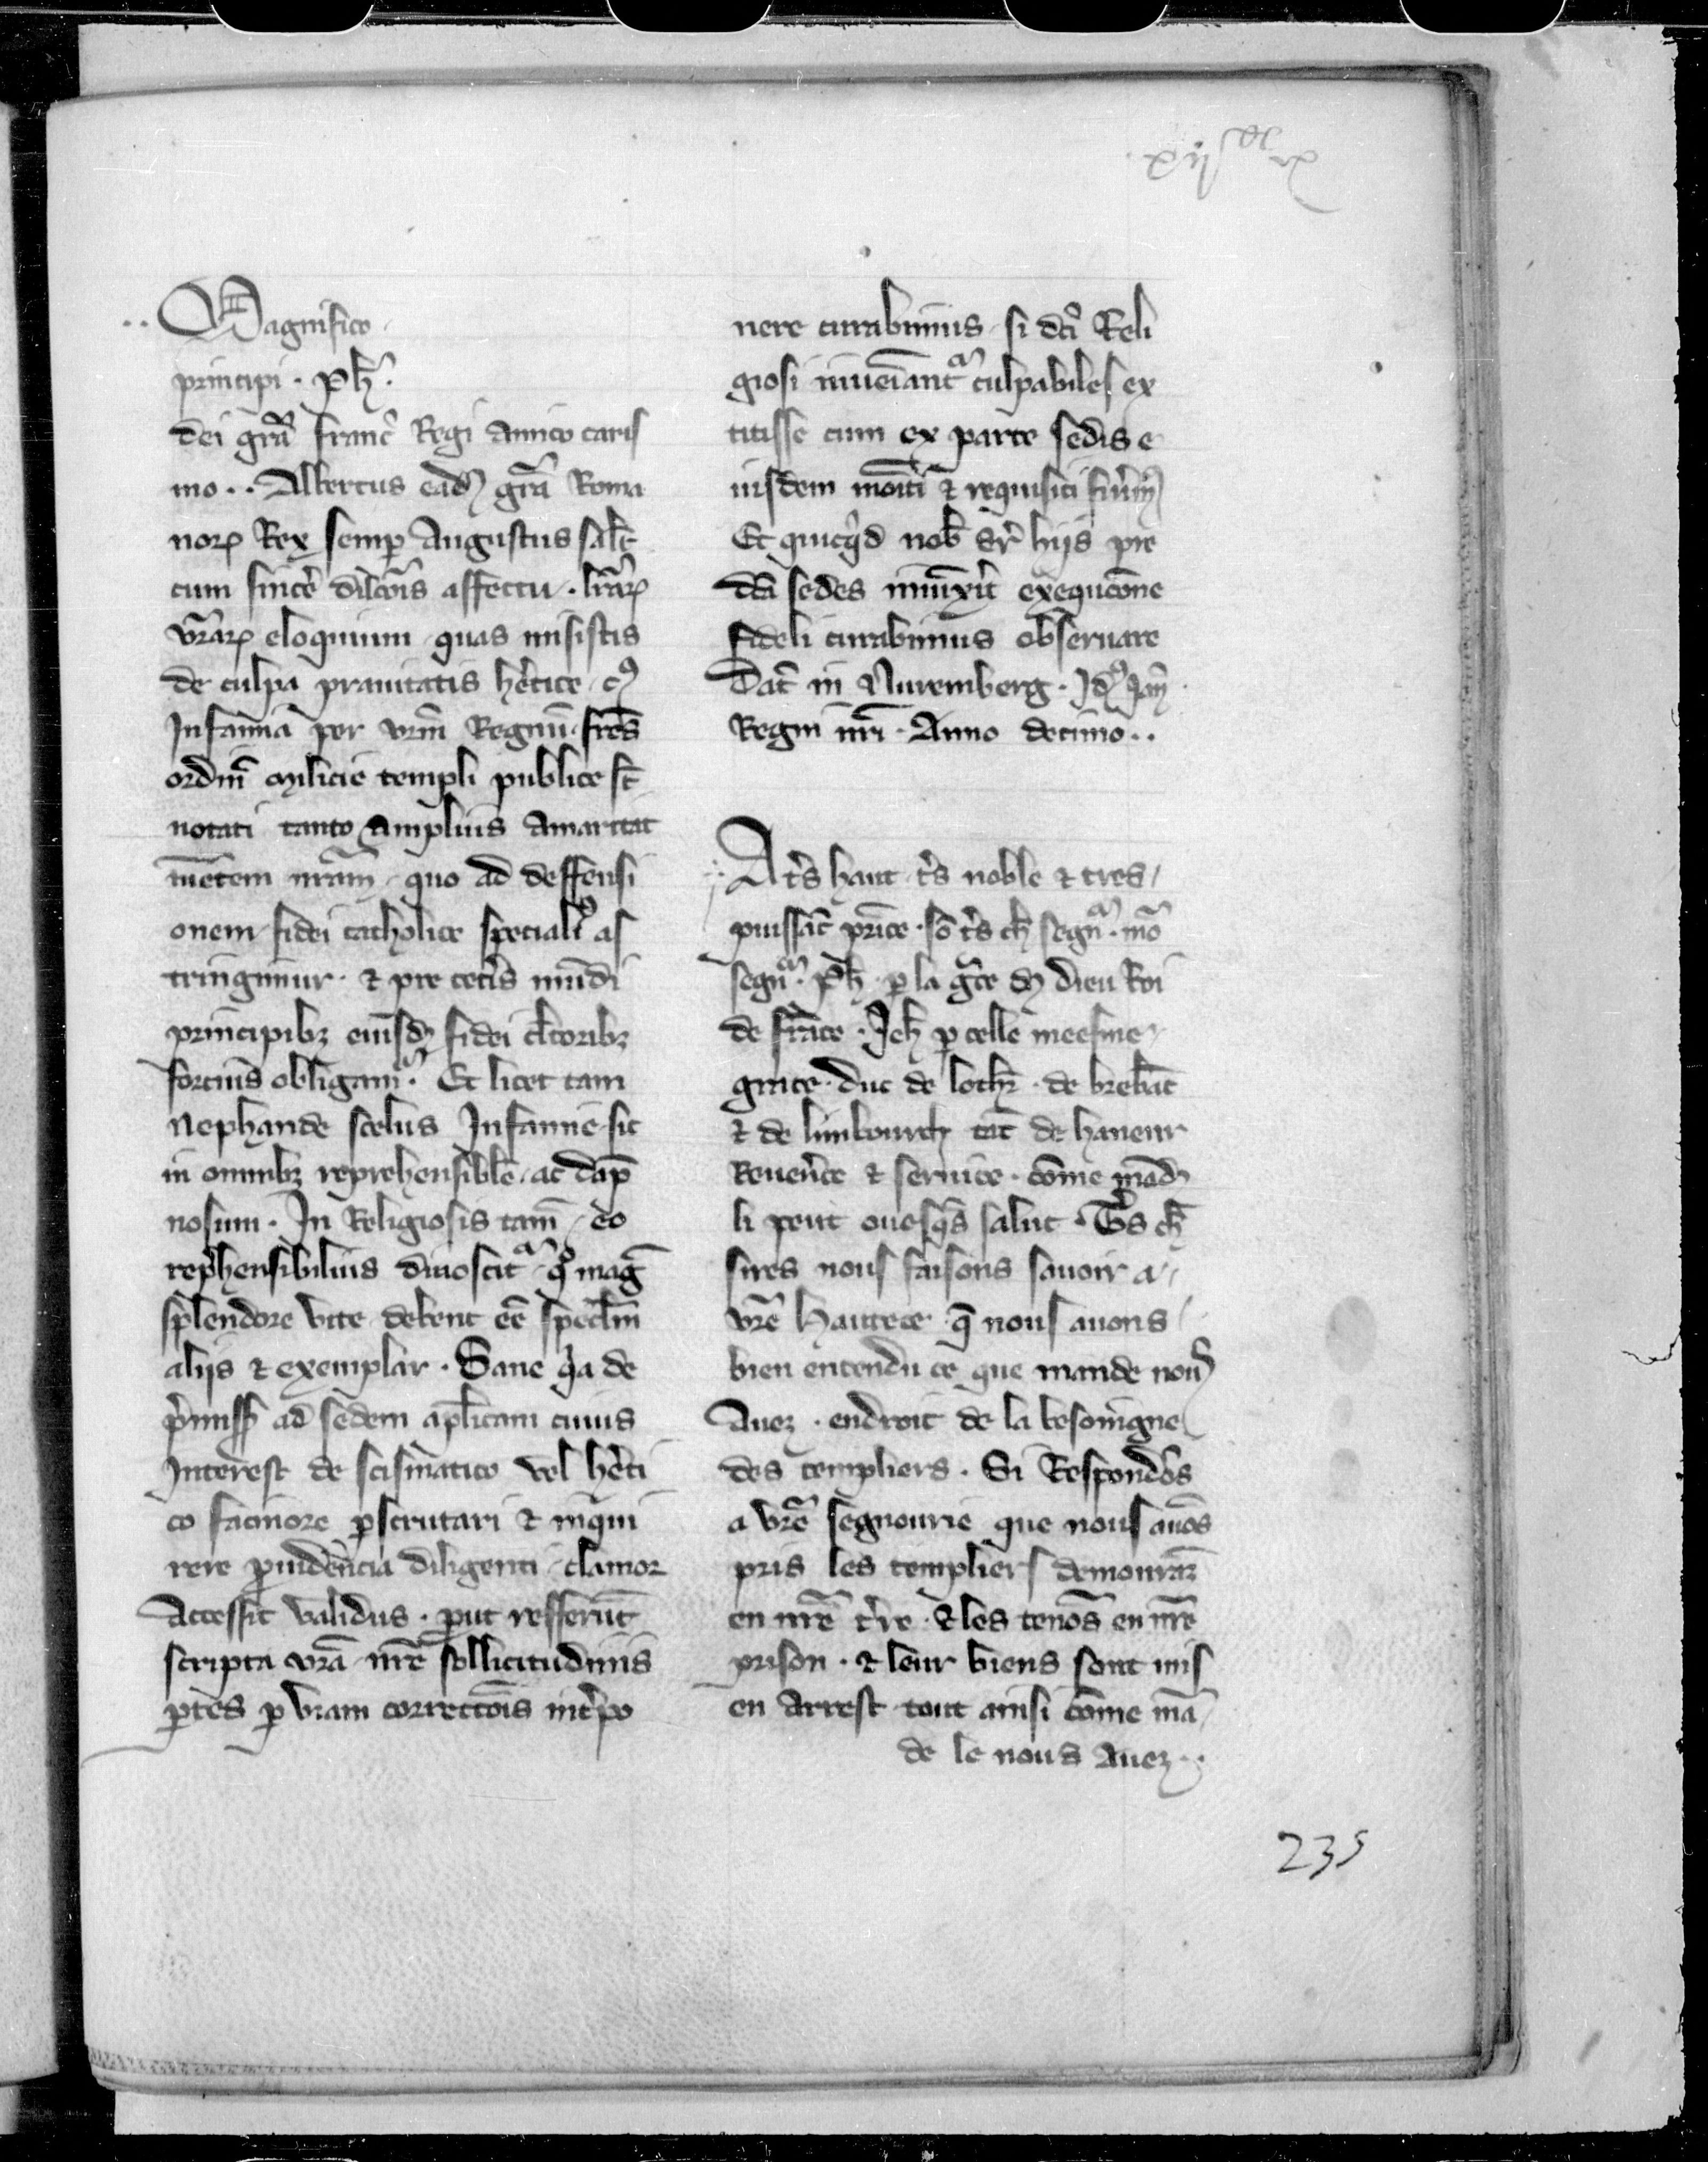 Magnifico
principi . Ph̄ .
dei gr̄a franc̄ Regi amico caris
mo . . Albertus ead̄ gr̄a Roma
norꝝ Rex semꝑ Augustus sal̄t
cum sinc̄e dilc̄ōis affectu . lr̄arꝝ
vr̄arꝝ eloquium quas misistis
de culpa prauitatis her̄tice cꝰ
Infamia per vr̄m Regnū fr̄es
ordīs milicie templi publice st̄
notati tanto amplius amaricat
mētem nr̄am quo ad deffensi
onem fidei catholice speciali as
tringimur . ⁊ pre cet̄is mūdi
principibꝫ eiusd̄ fidei cl̄toribꝫ
forcius obligamᷣ . Et licet tam
Nephande scelus Infamie sit
in omnibꝫ reprehensible . ac dāp
nosum . In Religiosis tam̄ eo
rep̄hensibilius dinoscitᷣ qͦ maḡ
splendore vite debent ēe specl̄m
alijs ⁊ exemplar . Sane qia de
p̄miss̄ ad sedem apl̄icam cuius
Interest de scismatico vel her̄ti
co facinore ꝑscrutari ⁊ inqui
rere ꝓuidēncia diligenti clamor
Accessit validus . ꝓut refferūt
scripta vr̄a nr̄e sollicitudinis
ꝑtes ꝑ vr̄am correctōis int̄po
nere curabimus si dc̄i Reli
giosi inueniantᷣ culpabiles ex
titisse cum ex parte sedis e
iusdem moniti ⁊ requisiti fūim̄
Et quicq̄d nob̄ sr̄ hijs pre
dc̄a sedes iniūxit̄ exequcōne
fideli curabimus obseruare
Dat̄ in Nuremberg . Id Jan̄
Regni nr̄i . Anno decimo . .
A tr̄s haut tr̄s noble ⁊ tres
puissāt pr̄ice . sō tr̄s ch̄ segnᷣ . mō
segnᷣ . Ph̄ . ꝑ la gr̄ce d̄ dieu Roi
de frāce . Jeh̄ ꝑ celle meesme
grace . duc de loth̄r . de brebāt
⁊ de limbourch tāt de haneur
Reuer̄ce ⁊ seruice . cōme mād̄
li peut ouesq̄s salut . Tr̄s ch̄
sires nous faisons sauoir a
vr̄e Hautece q̄ nous auons
bien entendu ce que mande nouꝰ
Auez . endroit de la besoingne
des templiers . Si Respondōs
a vr̄e segnourie que nous auōs
pris les templiers demourāz
en nr̄e t̄re . ⁊ les tenōs en nr̄e
prison . ⁊ leur biens sont mis
en arrest tout ainsi cōme mā
de le nous auez . .
235